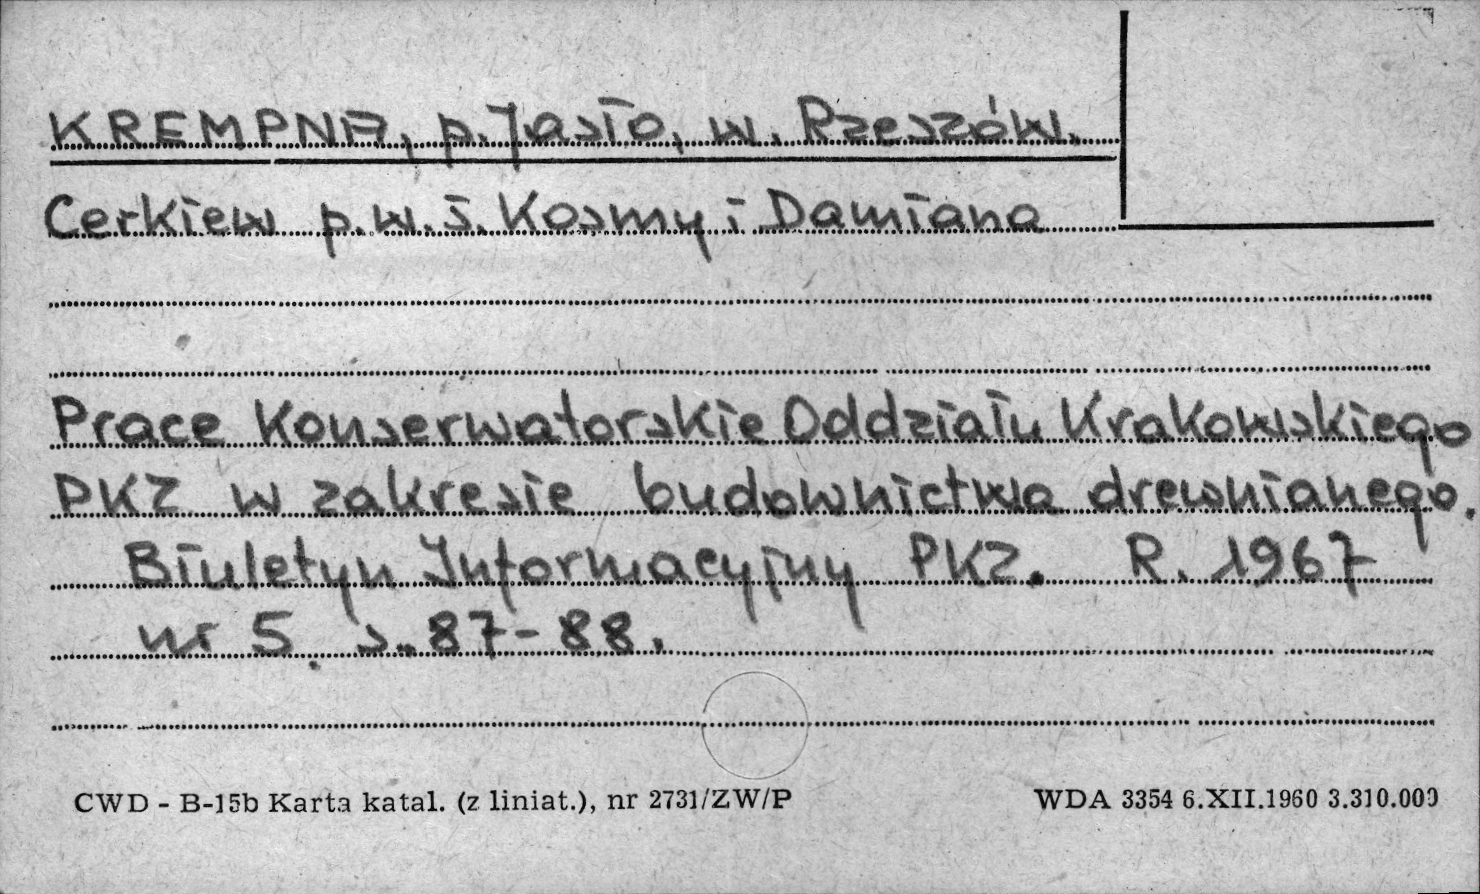 KREMPNA, p. Jasło, w. Rzeszów.
Cerkiew p.w. ś. Kosmy i Damiana
Prace Konserwatorskie Oddziału Krakowskiego
PKZ w zakresie budownictwa drewnianego.
Biuletyn Informacyjny PKZ. R. 1967
nr 5. s. 87-88.
CWD - B-15b Karta katal. (z liniat.), nr 2731/ZW/P WDA 3354 6.XII.1960 3.310.000